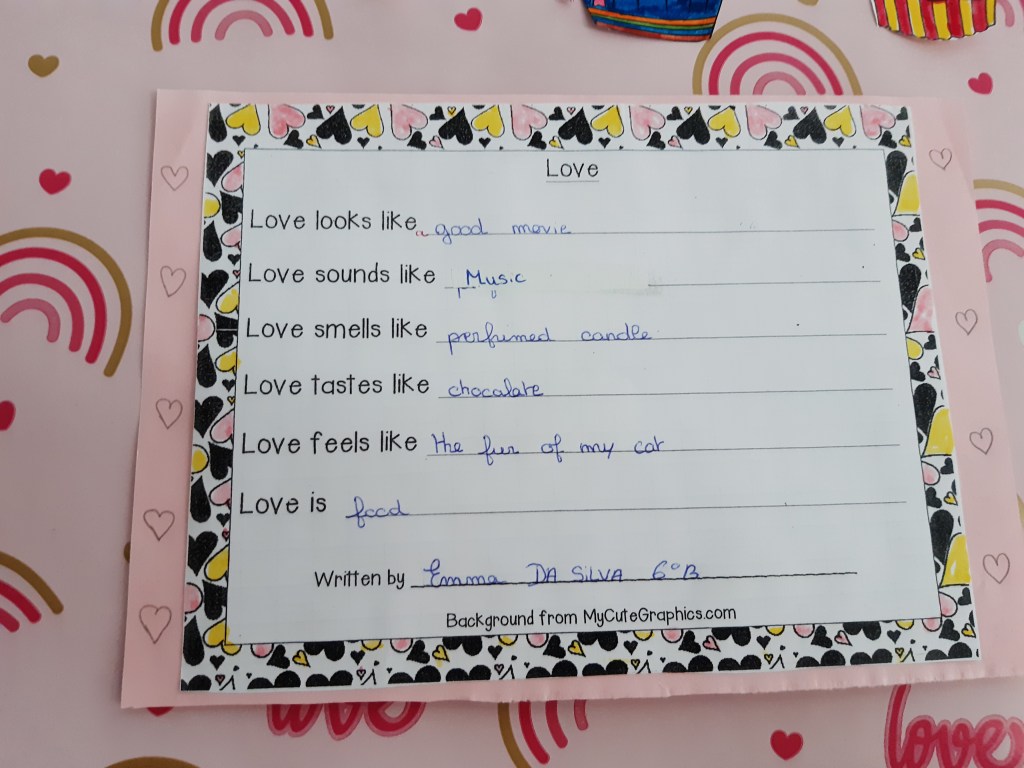 Love
Love looks like a good movie
Love sounds like Music
Love smells like perfumed candle
Love tastes like chocolate
Love feels like the fur of my cat
Love is food
Written by Emma DA SiLVA 6°B
Background from MyCuteGraphics.com
love
love